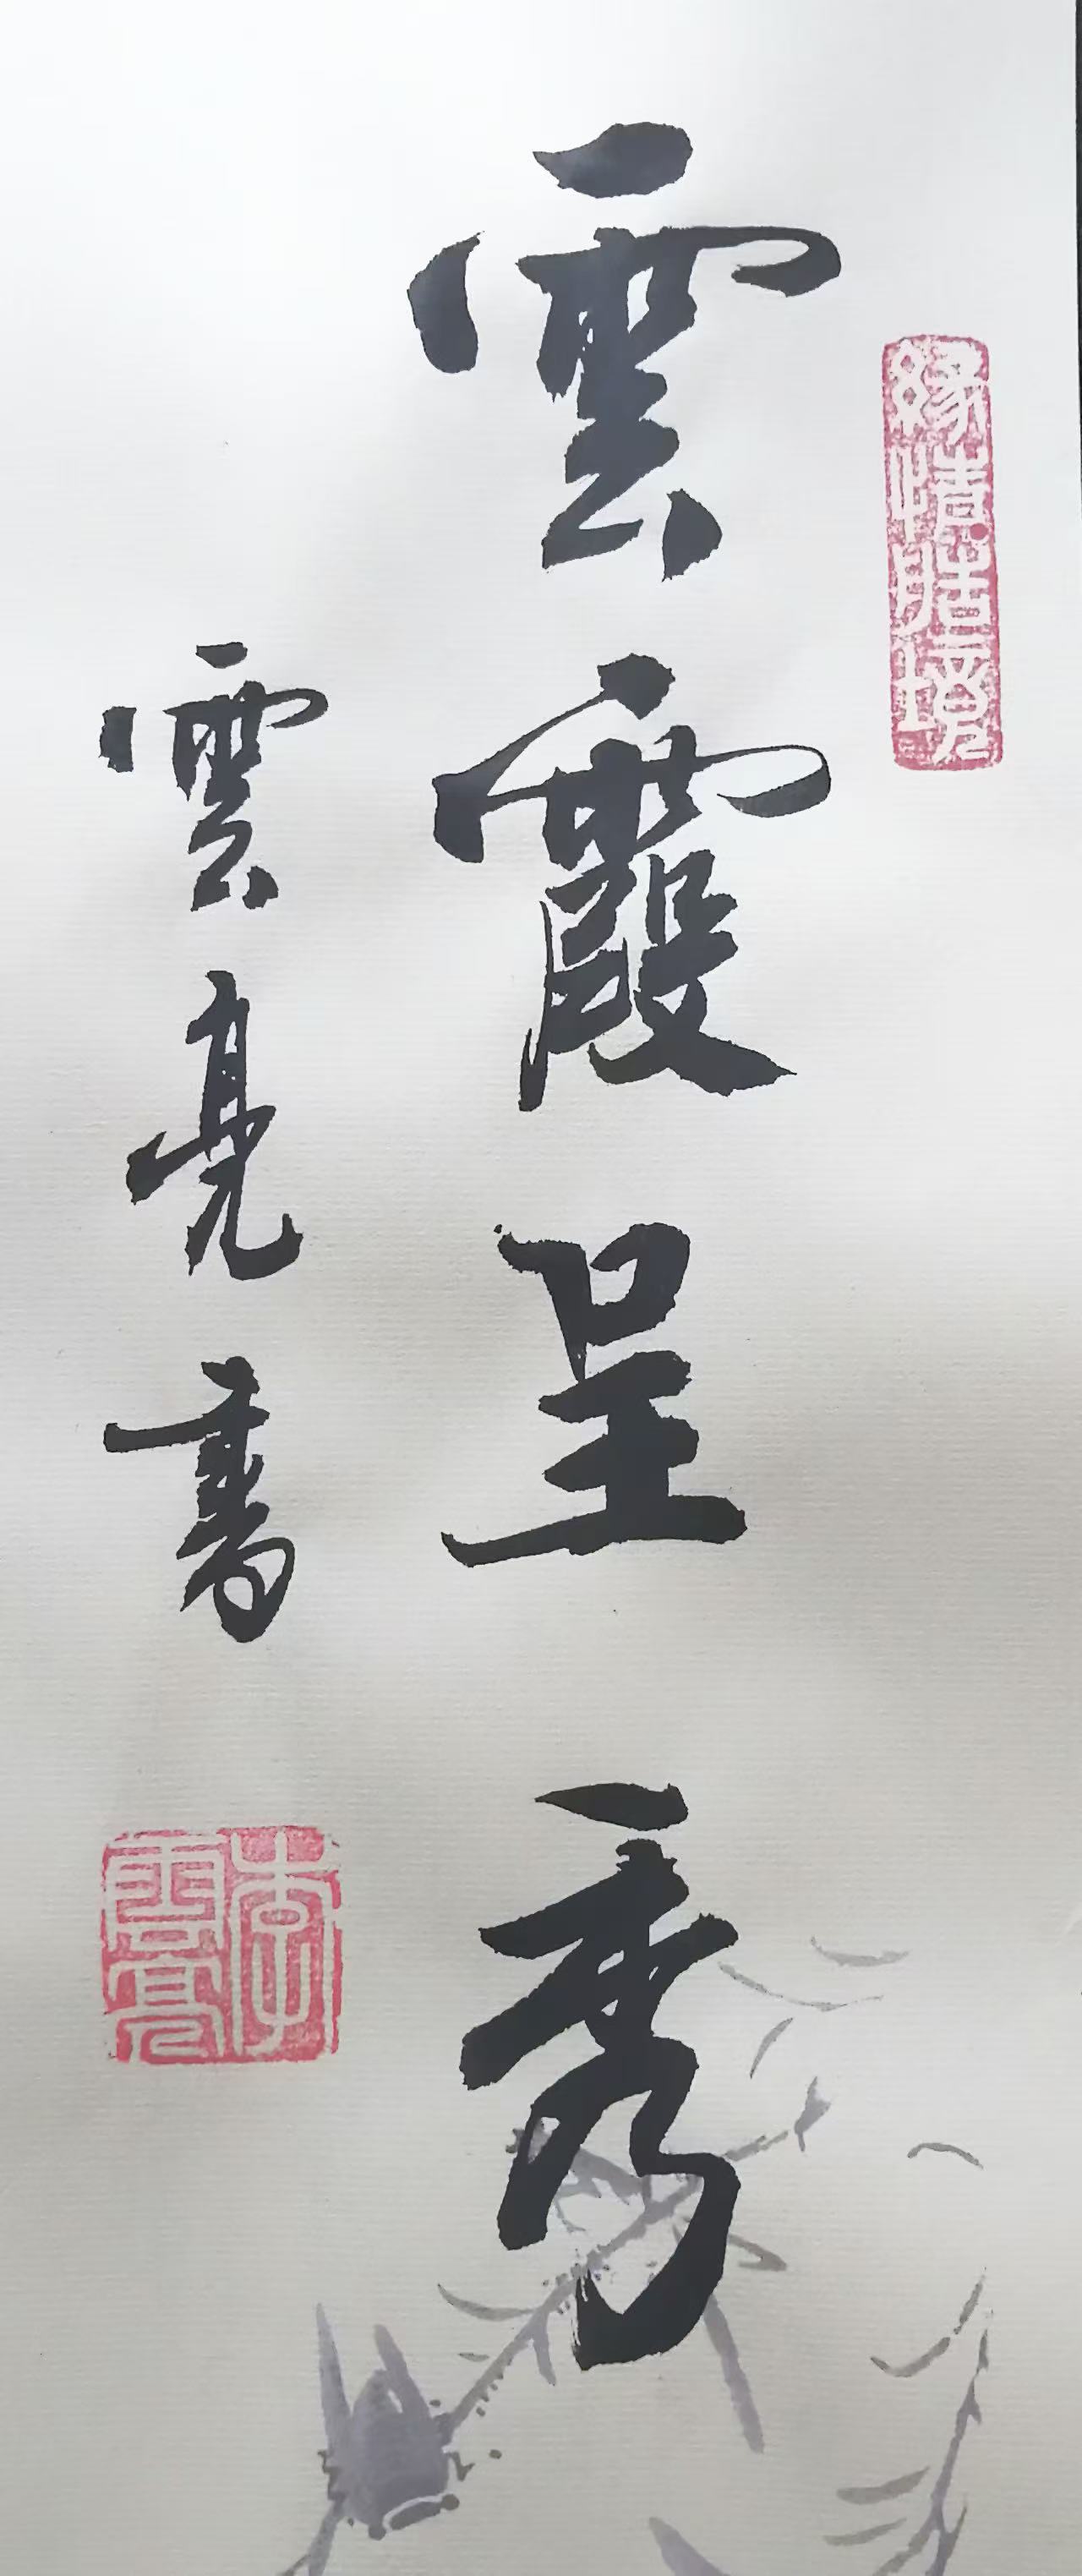 緣情體境
雲霞呈秀
雲亮書
李雲亮